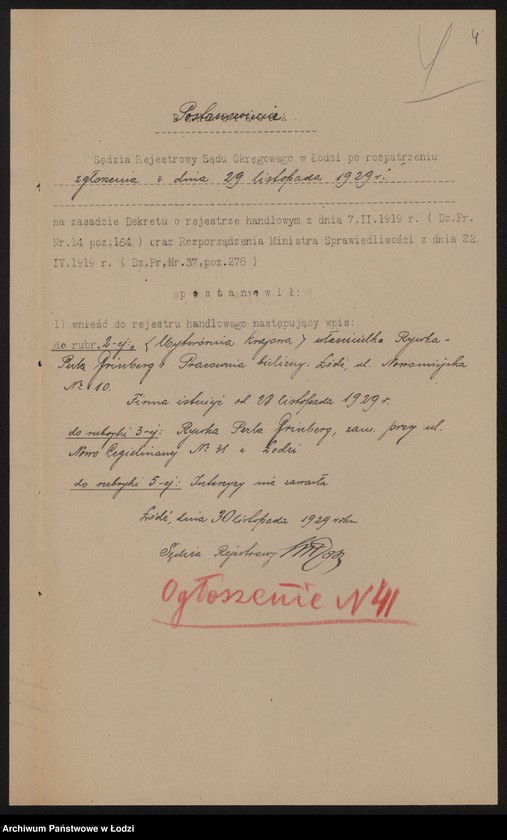 4
Postanowienie
Sędzia Rejestrowy Sądu Okręgowego w Łodzi po rozpatrzeniu
zgłoszenia z dnia 29 listopada 1929 r.
na zasadzie Dekretu o rejestrze handlowym z dnia 7.II.1919 r. ( Dz.Pr.
Nr.14 poz.164 ) oraz Rozporządzenia Ministra Sprawiedliwości z dnia 22
IV.1919 r. ( Dz.Pr.Nr.37,poz.278 )
p o s t a n o w i ł :
1) wnieść do rejestru handlowego następujący wpis:
do rubr. 2-ej: „Wytwórnia Krajowa” właścicielka Rywka-
Perla Grinberg" Pracownia bielizny. Łódź, ul. Nowomiejska
№ 10.
Firma istnieje od 28 listopada 1929 r.
do rubryki 3-ej: Rywka Perla Grinberg, zam. przy ul.
Nowo Cegielnianej № 31 w Łodzi
do rubryki 5-ej: Intercyzy nie zawarła
Łódź, dnia 30 listopada 1929 roku
Sędzia Rejestrowy
Ogłoszenie N 41
Archiwum Państwowe w Łodzi